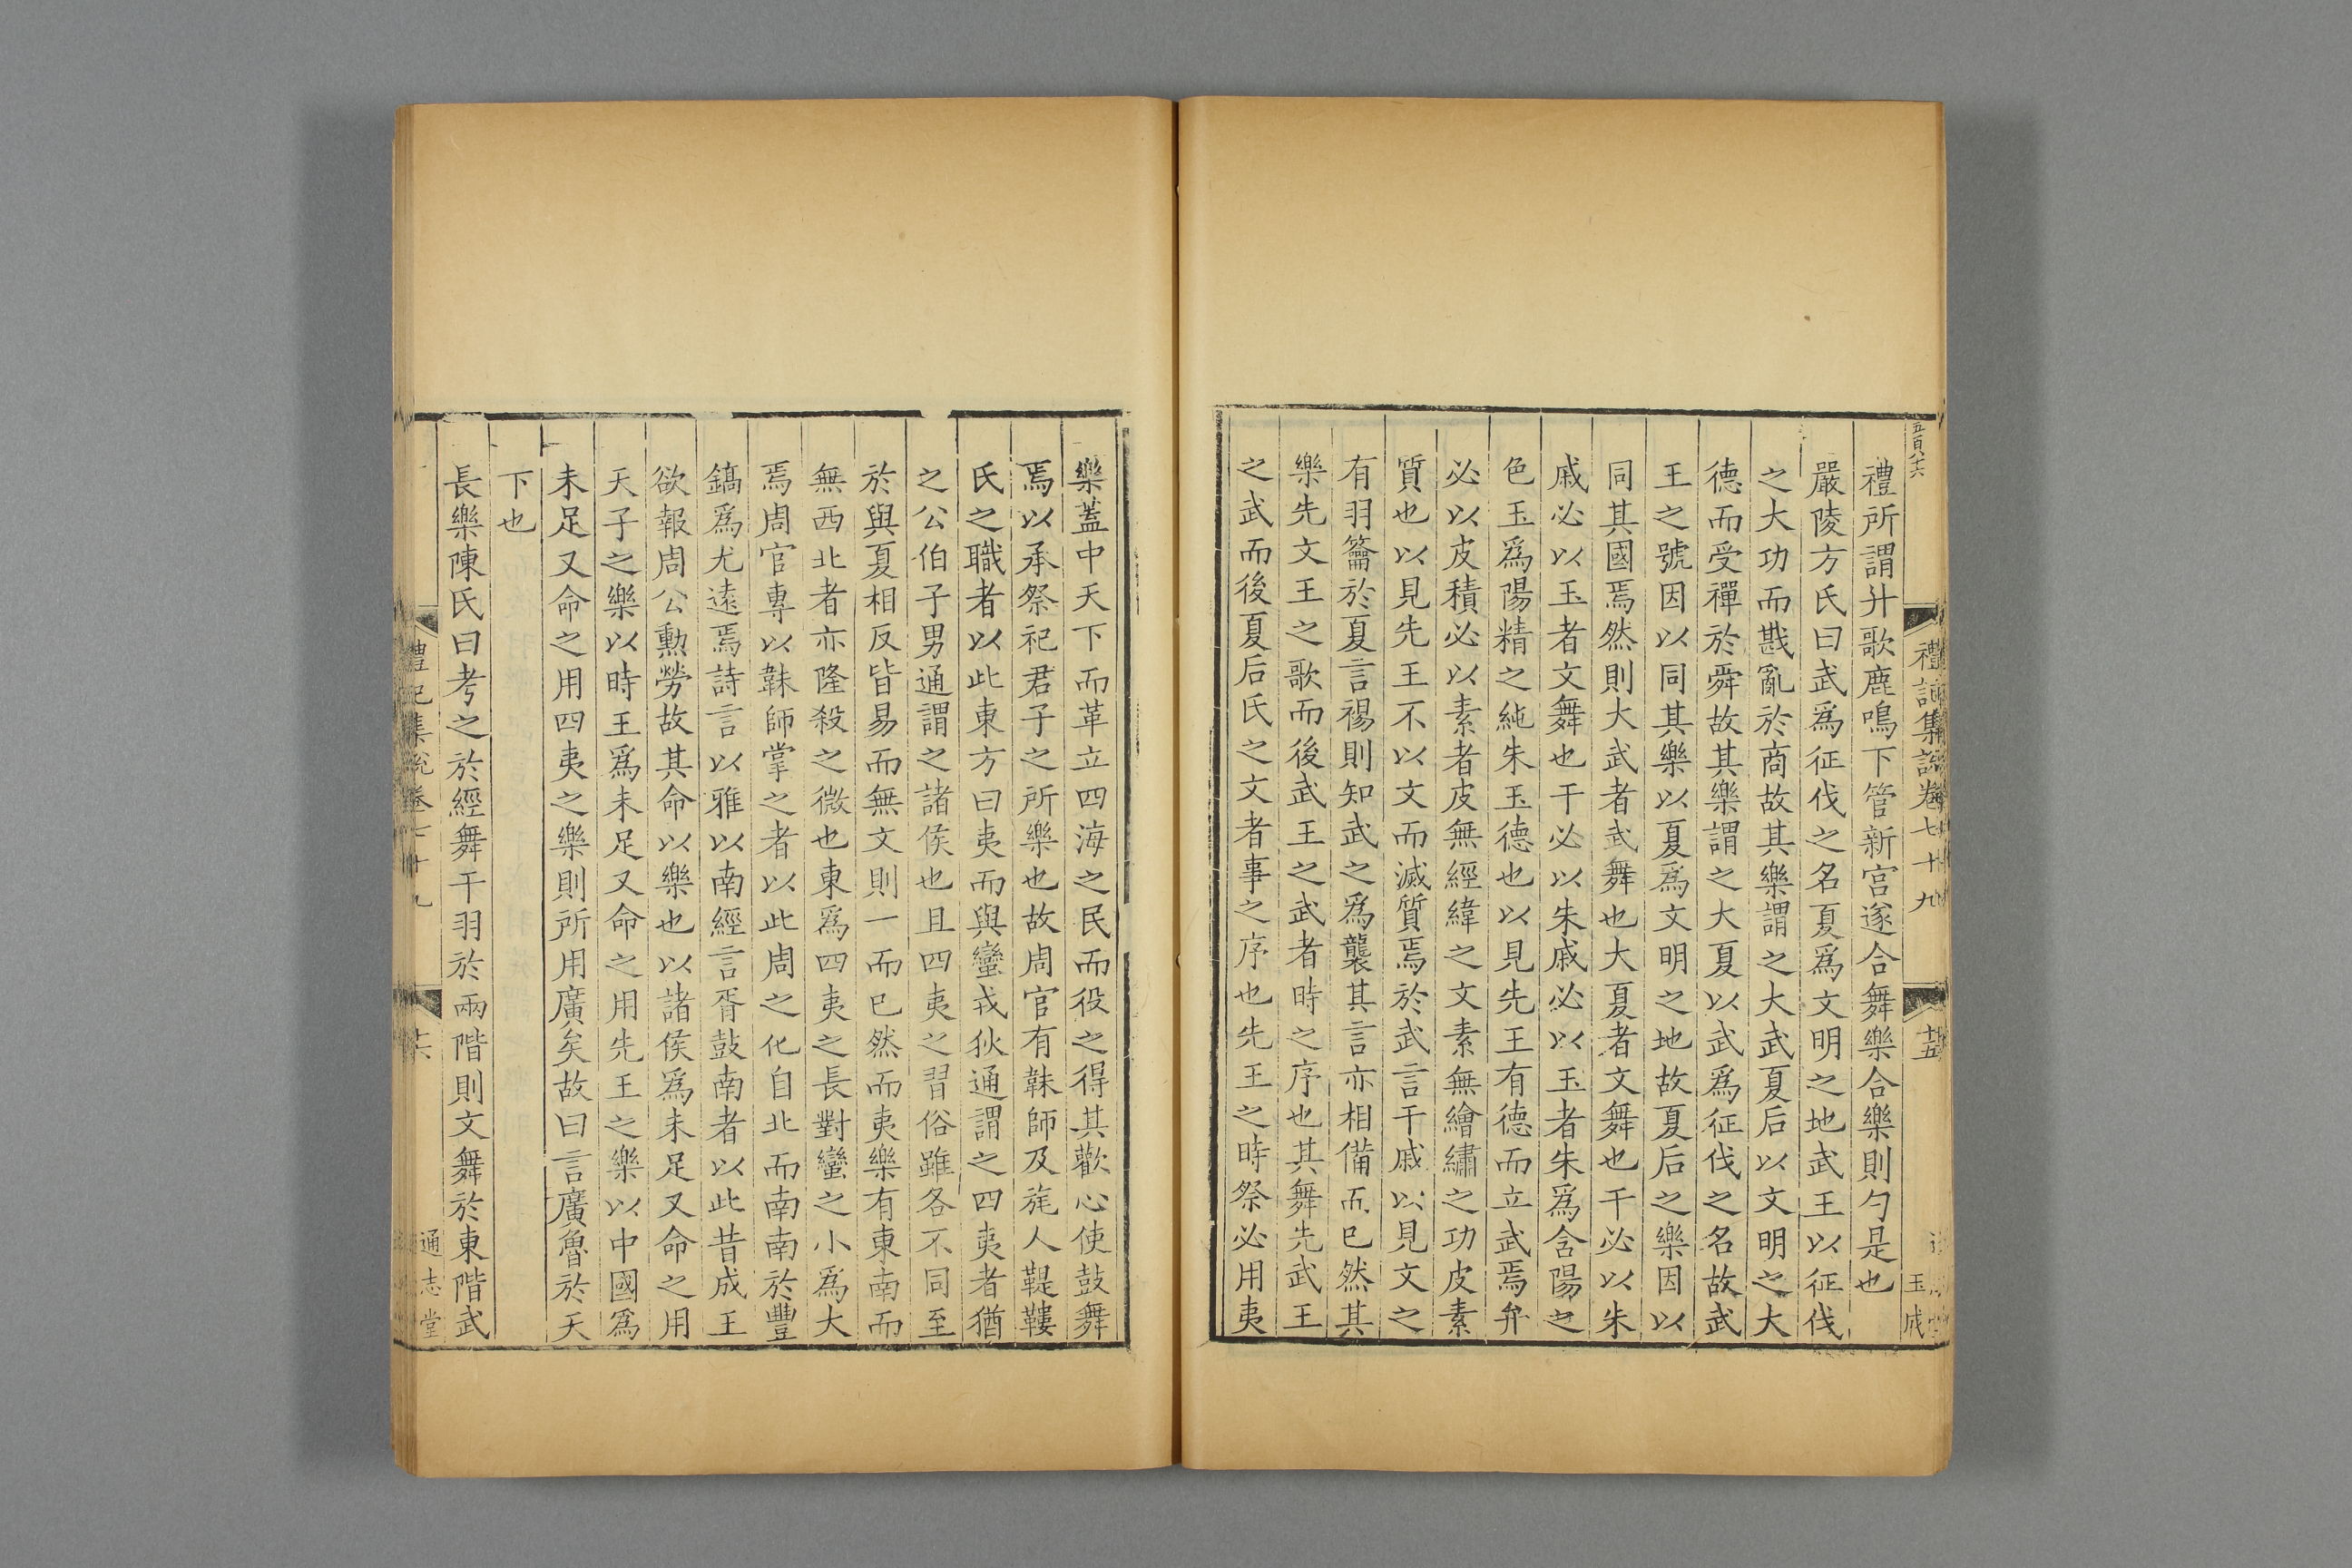 五百八十六
禮記集說卷七十九
十五
玉成
禮所謂升歌鹿鳴下管新宮遂合舞樂合樂則勺是也
嚴陵方氏曰武爲征伐之名夏爲文明之地武王以征伐
之大功而戡亂於商故其樂謂之大武夏后以文明之大
德而受禪於舜故其樂謂之大夏以武爲征伐之名故武
王之號因以同其樂以夏爲文明之地故夏后之樂因以
同其國焉然則大武者武舞也大夏者文舞也干必以朱
戚必以玉者文舞也干必以朱戚必以玉者朱爲含陽之
色玉爲陽精之純朱玉德也以見先王有德而立武焉弁
必以皮積必以素者皮無經緯之文素無繪繡之功皮素
質也以見先王不以文而滅質焉於武言干戚以見文之
有羽籥於夏言裼則知武之爲襲其言亦相備而已然其
樂先文王之歌而後武王之武者時之序也其舞先武王
之武而後夏后氏之文者事之序也先王之時祭必用夷
樂蓋中天下而革立四海之民而役之得其歡心使鼓舞
焉以承祭祀君子之所樂也故周官有韎師及旄人鞮鞻
氏之職者以此東方曰夷而與蠻戎狄通謂之四夷者猶
之公伯子男通謂之諸侯也且四夷之習俗雖各不同至
於與夏相反皆易而無文則一而已然而夷樂有東南而
無西北者亦隆殺之微也東爲四夷之長對蠻之小爲大
焉周官專以韎師掌之者以此周之化自北而南南於豐
鎬爲尤遠焉詩言以雅以南經言胥鼓南者以此昔成王
欲報周公勲勞故其命以樂也以諸侯爲未足又命之用
天子之樂以時王爲未足又命之用先王之樂以中國爲
未足又命之用四夷之樂則所用廣矣故曰言廣魯於天
下也
長樂陳氏曰考之於經舞干羽於兩階則文舞於東階武
禮記集說卷七十九
十六
通志堂